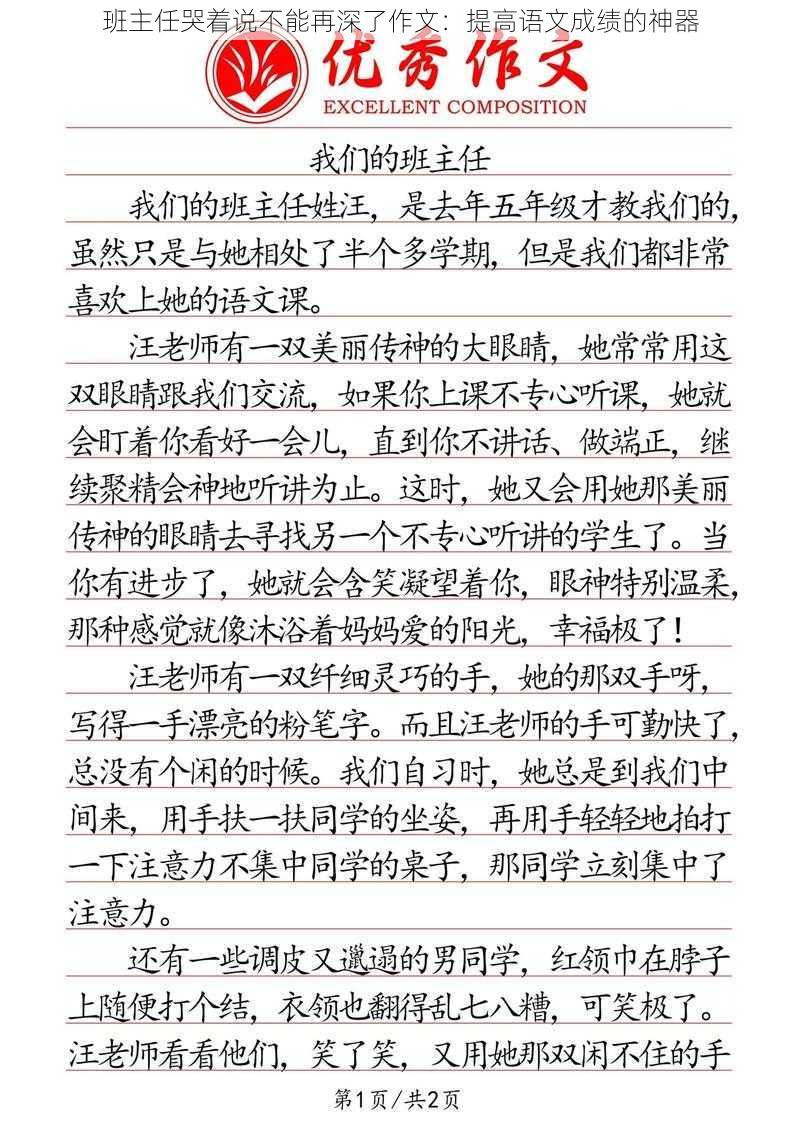 班主任哭着说不能再深了作文：提高语文成绩的神器
优秀作文
EXCELLENT COMPOSITION
我们的班主任
我们的班主任姓汪，是去年五年级才教我们的，
虽然只是与她相处了半个多学期，但是我们都非常
喜欢上她的语文课。
汪老师有一双美丽传神的大眼睛，她常常用这
双眼睛跟我们交流，如果你上课不专心听课，她就
会盯着你看好一会儿，直到你不讲话、做端正，继
续聚精会神地听讲为止。这时，她又会用她那美丽
传神的眼睛去寻找另一个不专心听讲的学生了。当
你有进步了，她就会含笑凝望着你，眼神特别温柔，
那种感觉就像沐浴着妈妈爱的阳光，幸福极了！
汪老师有一双纤细灵巧的手，她的那双手呀，
写得一手漂亮的粉笔字。而且汪老师的手可勤快了，
总没有个闲的时候。我们自习时，她总是到我们中
间来，用手扶一扶同学的坐姿，再用手轻轻地拍打
一下注意力不集中同学的桌子，那同学立刻集中了
注意力。
还有一些调皮又邋遢的男同学，红领巾在脖子
上随便打个结，衣领也翻得乱七八糟，可笑极了。
汪老师看看他们，笑了笑，又用她那双闲不住的手
第1页/共2页